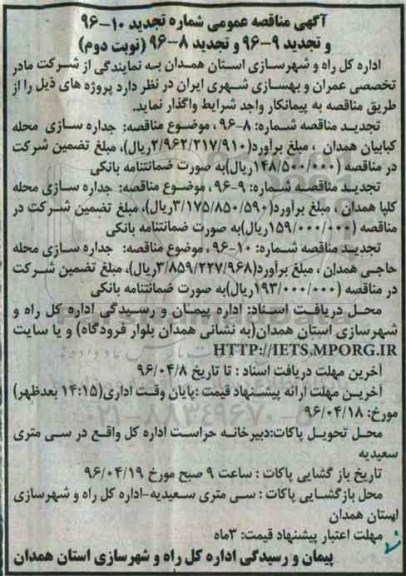 آگهی مناقصه عمومی شماره تجدید ۱۰-۹۶
و تجدید ۹-۹۶ و تجدید ۸-۹۶ (نوبت دوم)
اداره کل راه و شهرسازی استان همدان به نمایندگی از شرکت مادر
تخصصی عمران و بهسازی شهری ایران در نظر دارد پروژه های ذیل را از
طریق مناقصه به پیمانکار واجد شرایط واگذار نماید.
تجدید مناقصه شماره: ۸-۹۶ ، موضوع مناقصه: جداره سازی محله
کبابیان همدان ، مبلغ برآورد(۲/۹۶۲/۲۱۷/۹۱۰ریال)، مبلغ تضمین شرکت
در مناقصه (۱۴۸/۵۰۰/۰۰۰ریال)به صورت ضمانتنامه بانکی
تجدید مناقصه شماره: ۹-۹۶ ، موضوع مناقصه: جداره سازی محله
کلپا همدان ، مبلغ برآورد(۳/۱۷۵/۸۵۰/۵۹۰ریال)، مبلغ تضمین شرکت در
مناقصه (۱۵۹/۰۰۰/۰۰۰ریال)به صورت ضمانتنامه بانکی
تجدید مناقصه شماره: ۱۰-۹۶ ، موضوع مناقصه: جداره سازی محله
حاجی همدان ، مبلغ برآورد(۳/۸۵۹/۲۲۷/۹۶۸ریال)، مبلغ تضمین شرکت
در مناقصه (۱۹۳/۰۰۰/۰۰۰ریال)به صورت ضمانتنامه بانکی
محل دریافت اسناد: اداره پیمان و رسیدگی اداره کل راه و
شهرسازی استان همدان(به نشانی همدان بلوار فرودگاه) و یا سایت
HTTP://IETS.MPORG.IR
آخرین مهلت دریافت اسناد : تا تاریخ ۹۶/۰۴/۸
آخرین مهلت ارائه پیشنهاد قیمت :پایان وقت اداری(۱۴:۱۵ بعدظهر)
مورخ: ۹۶/۰۴/۱۸
محل تحویل پاکات:دبیرخانه حراست اداره کل واقع در سی متری
سعیدیه
تاریخ باز گشایی پاکات : ساعت ۹ صبح مورخ ۹۶/۰۴/۱۹
محل بازگشایی پاکات : سی متری سعیدیه-اداره کل راه و شهرسازی
استان همدان
مهلت اعتبار پیشنهاد قیمت: ۳ماه
پیمان و رسیدگی اداره کل راه و شهرسازی استان همدان